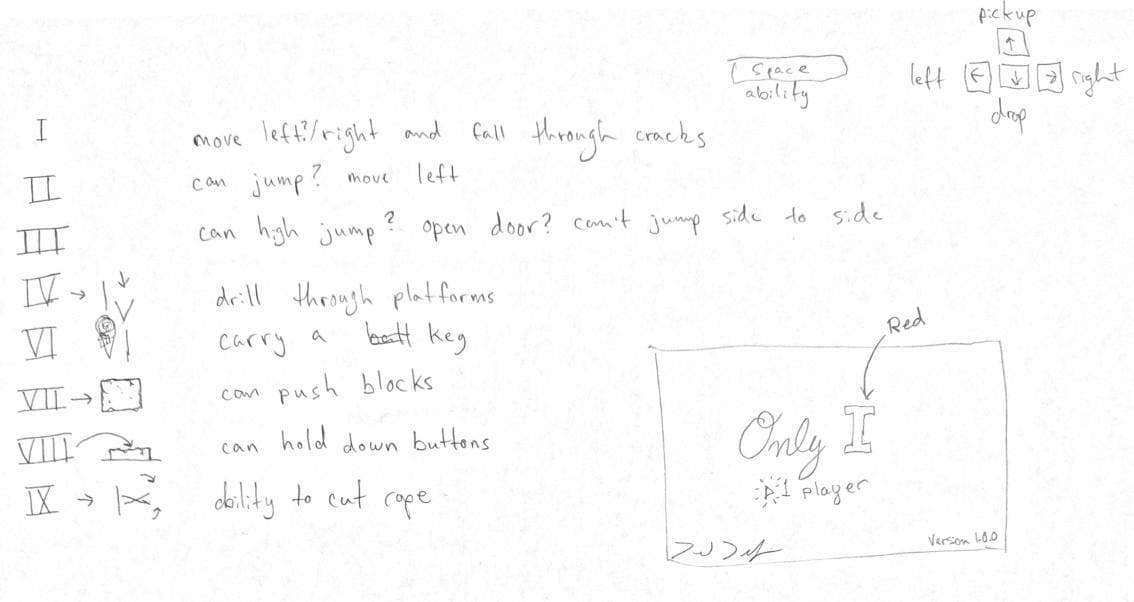 pickup
Space
ability
left
right
drop
I move left?/right and fall through cracks
II can jump? move left
III can high jump? open door? can't jump side to side
IV drill through platforms
VI carry a key
VII can push blocks
VIII can hold down buttons
IX ability to cut rope
Red
Only I
1 player
Version 1.0.0